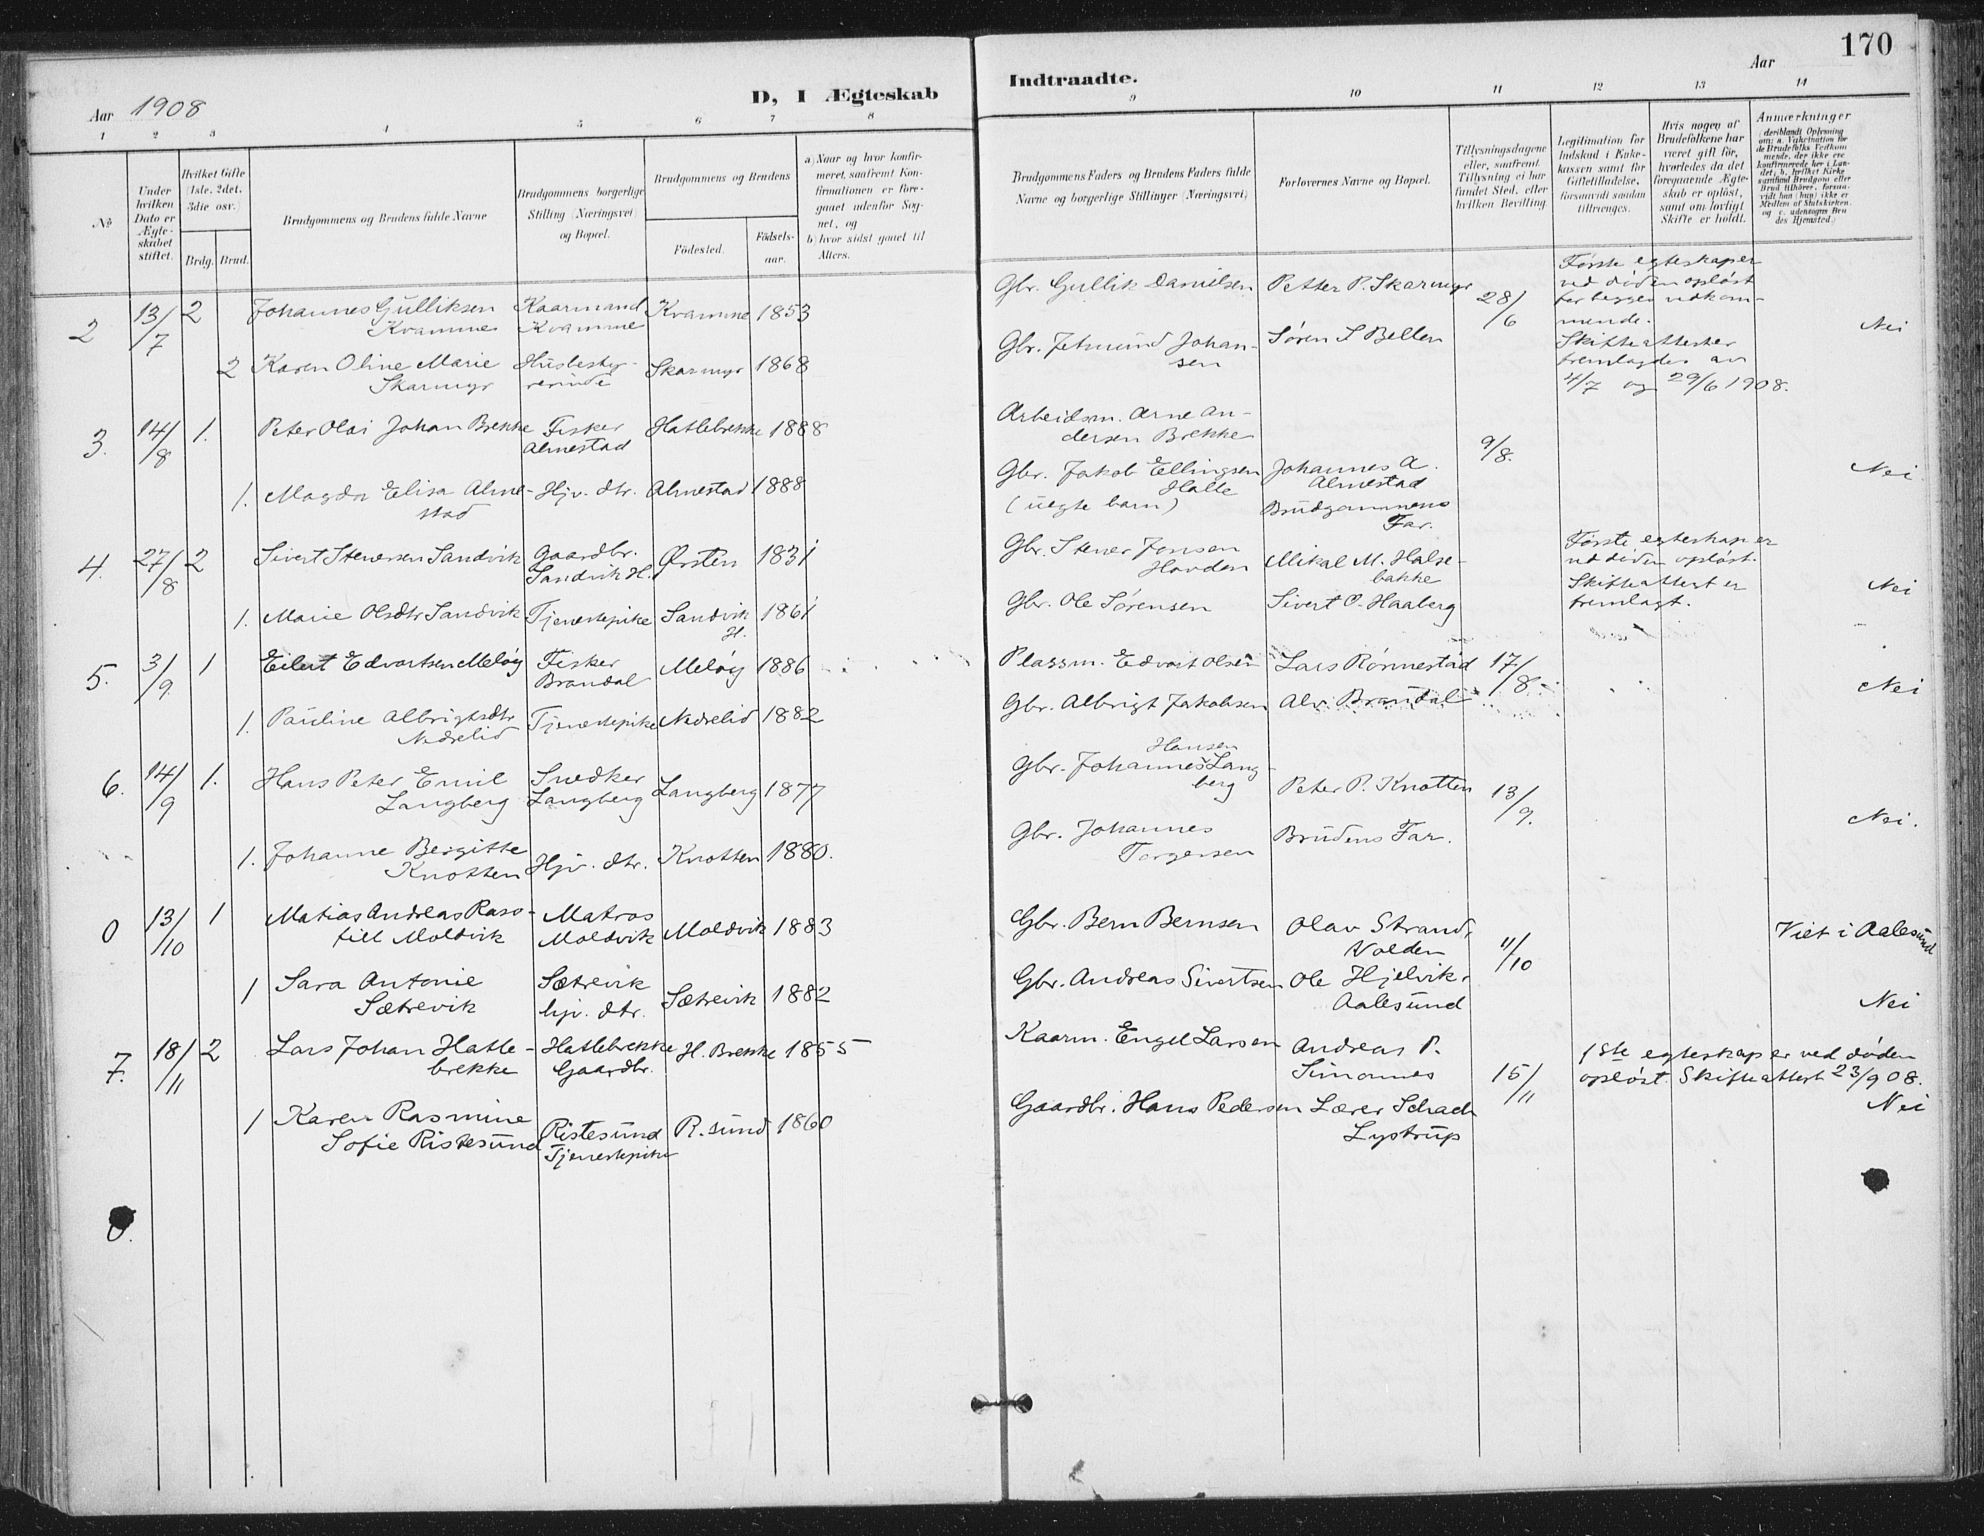 170
Aar 1908
D, I Ægteskab
Indtraadte.
Aar
1 2 3 4 5 6 7 8 9 10 11 12 13 14
No
Under hvilken Dato er Ægteskabet stiftet.
Hvilket Gifte (1ste, 2det, 3die osv.)
Brdg. Brud.
Brudgommens og Brudens fulde Navne
Brudgommens borgerlige Stilling (Næringsvei) og Bopæl.
Brudgommens og Brudens
Födested.
Födsels-aar.
a) Naar og hvor konfirmeret, saafremt Konfirmationen er foregaaet udenfor Sognet, og
b) hvor sidst gaaet til Alters.
Brudgommens Faders og Brudens Faders fulde Navne og borgerlige Stillinger (Næringsvei)
Forlovernes Navne og Bopæl.
Tillysningsdagene eller, saafremt Tillysning ei har fundet Sted, efter hvilken Bevilling
Legitimation for Indskud i Enkekassen samt for Giftetilladelse, forsaavidt saadan tiltrænges.
Hvis nogen af Brudefolkene har været gift för, hvorledes da det foregaaende Ægteskab er oplöst, samt om lovligt Skifte er holdt.
Anmærkninger
2 13/7 2 Johannes Gulliksen Kvamme Kaarmand Kvamme Kvamme 1853
Gbr. Gullik Danielsen Petter P. Skarmyr 28/6
Første egteskap er ved døden opløst for begges vedkommende. Skifteattester fremlagdes av 4/7 og 29/6 1908. Nei
2 Karen Oline Marie Skarmyr Husbestyrerinde Skarmyr 1868
Gbr. Jetmund Johansen Søren S Bellen
3. 14/8 1. Peter Olai Johan Brekke Fisker Almestad Hatlebrekke 1888
Arbeidsm. Arne Andersen Brekke 9/8.
1. Magda Elisa Almestad Hjv. dtr. Almestad 1888
Gbr. Jakob Ellingsen Hatle (uegte barn) Johannes A. Almestad Brudgommens Far. Nei
4. 27/8 2 Sivert Stenersen Sandvik Gaardbr. Sandvik H. Ørsten 1831
Gbr. Stener Jonsen Hovden Mikal M. Halsebakke
Første egteskap er ved døden opløst. Skifteattest er fremlagt. Nei
1. Marie Olsdtr Sandvik Tjenestepike Sandvik H. 1861
Gbr. Ole Sørensen Sivert O. Haaberg
5. 3/9. 1 Eilert Edvartsen Meløy Fisker Brandal Meløy 1886
Plassm. Edvart Olsen Lars Rønnestad 17/8 Nei
1. Pauline Albrigtsdtr Nedrelid Tjenestepike Nedrelid 1882
Gbr. Albrigt Jakobsen Alv. Brandal
6. 14/9 1. Hans Peter Emil Langberg Snedker Langberg Langberg 1877
Gbr. Johannes Hansen Langberg Peter P. Knotten 13/9. Nei.
1. Johanne Bergitte Knotten Hjv. dtr. Knotten 1880.
Gbr. Johannes Torgersen Brudens Far.
0 13/10 1 Matias Andreas Rasotill Moldvik Matros Moldvik Moldvik 1883
Gbr. Bern Bernsen Olav Strand, Volden 11/10 Viet i Aalesund
1 Sara Antonie Sætrevik Sætrevik hjv. dtr. Sætrevik 1882
Gbr. Andreas Sivertsen Ole Hjelvik, Aalesund Nei
7. 18/11 2 Lars Johan Hatlebrekke Hatlebrekke Gaardbr. H. Brekke 1855
Kaarm. Engel Larsen Andreas P. Simonnes 15/11
1ste egteskap er ved døden opløst. Skifteattest 23/9 08. Nei
1 Karen Rasmine Sofie Ristesund Ristesund Tjenestepike R. sund 1860
Gaardbr. Hans Pedersen Lærer Schach Lystrup